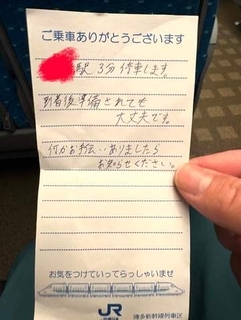 ご乗車ありがとうございます
駅 3分停車します。
到着後準備されても
大丈夫です。
何かお手伝いありましたら
お知らせください。
お気をつけていってらっしゃいませ
JR 博多新幹線列車区